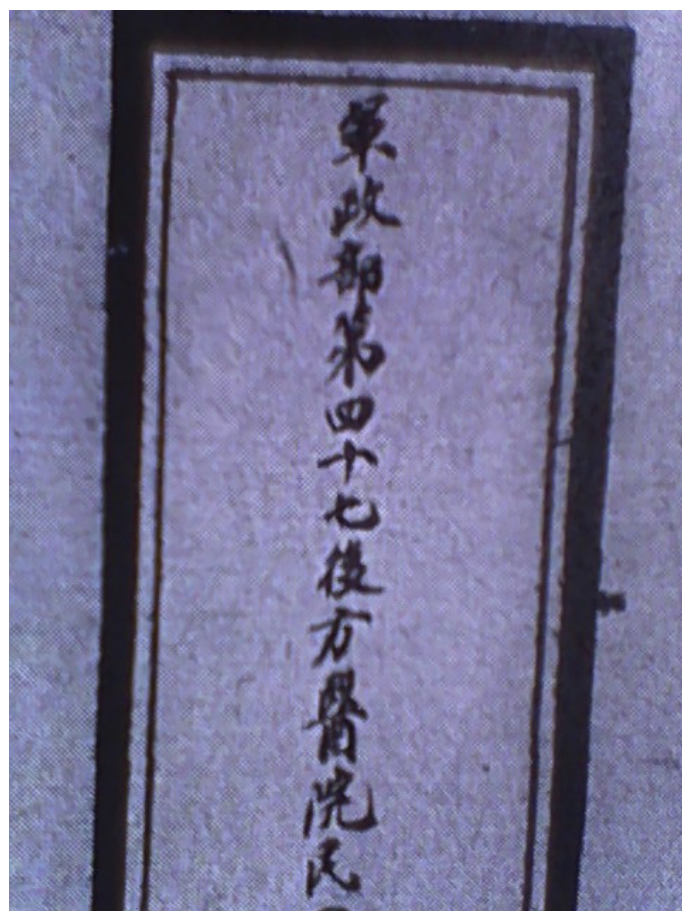 軍政部第四十七後方醫院民